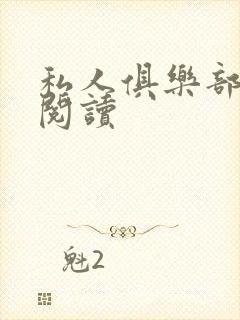 私人俱樂部
閱讀
魁2